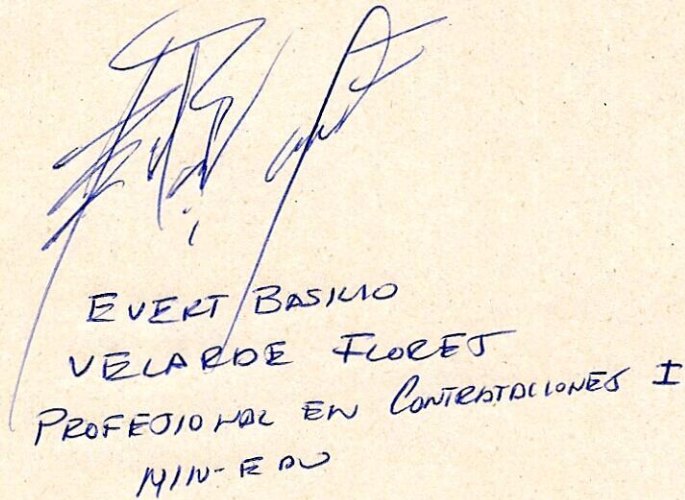 EVERT BASILIO
VELARDE FLORES
PROFESIONAL EN CONTRATACIONES I
MIN-EDU